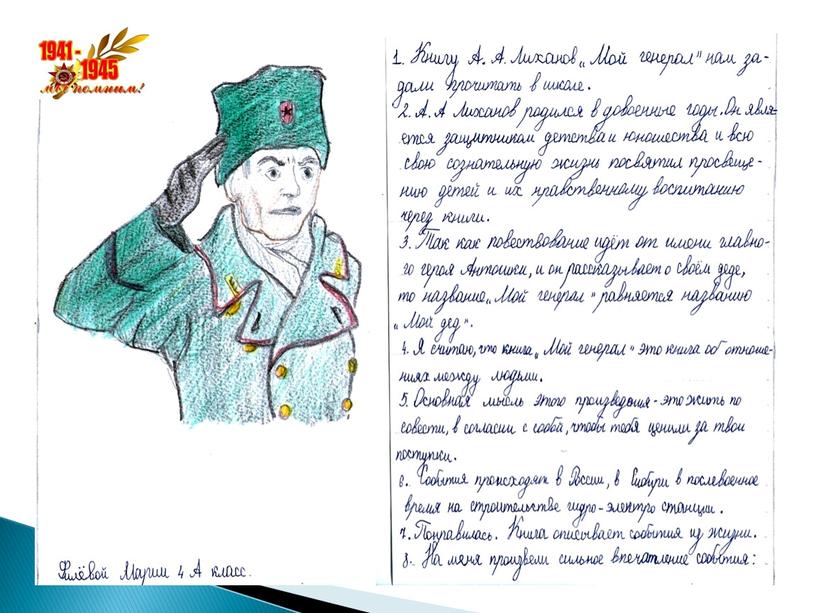 1941-
1945
мы помним!
1. Книгу А. А. Лиханов „Мой генерал" нам за-
дали прочитать в школе.
2. А. А Лиханов родился в довоенные годы. Он явля-
ется защитником детства и юношества и всю
свою сознательную жизнь посвятил просвеще-
нию детей и их нравственному воспитанию
через книги.
3. Так как повествование идёт от имени главно-
го героя Антошки, и он рассказывает о своём деде,
то название „Мой генерал" равняется названию
„Мой дед".
4. Я считаю, что книга „Мой генерал" это книга об отноше-
ниях между людьми.
5. Основная мысль этого произведения - это жить по
совести, в согласии с собой, чтобы тебя ценили за твои
поступки.
6. События происходят в России, в Сибири в послевоенное
время на строительстве гидро-электро станции.
7. Понравилась. Книга описывает события из жизни.
8. На меня произвели сильное впечатление события:
Филёвой Марии 4 А класс.